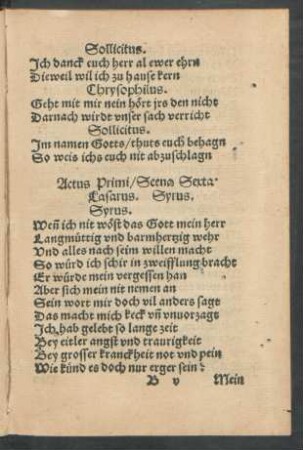 Sollicitus.
Ich danck euch herr al ewer ehrn
Dieweil wil ich zu hause kern
Chrysophilus.
Geht mit mir nein hört jrs den nicht
Darnach wirdt vnser sach verricht
Sollicitus.
Im namen Gotts/thuts euch behagn
So weis ichs euch nit abzuschlagn
Actus Primi/Scena Sexta.
Lasarus. Syrus.
Syrus.
Weñ ich nit wöst das Gott mein herr
Langmüttig vnd barmhertzig wehr
Vnd alles nach seim willen macht
So würd ich schir in zweifflung bracht
Er würde mein vergessen han
Aber sich mein nit nemen an
Sein wort mir doch vil anders sagt
Das macht mich keck vñ vnuorzagt
Ich hab gelebt so lange zeit
Bey eitler angst vnd traurigkeit
Bey grosser kranckheit not vnd pein
Wie künd es doch nur erger sein?
B v Mein